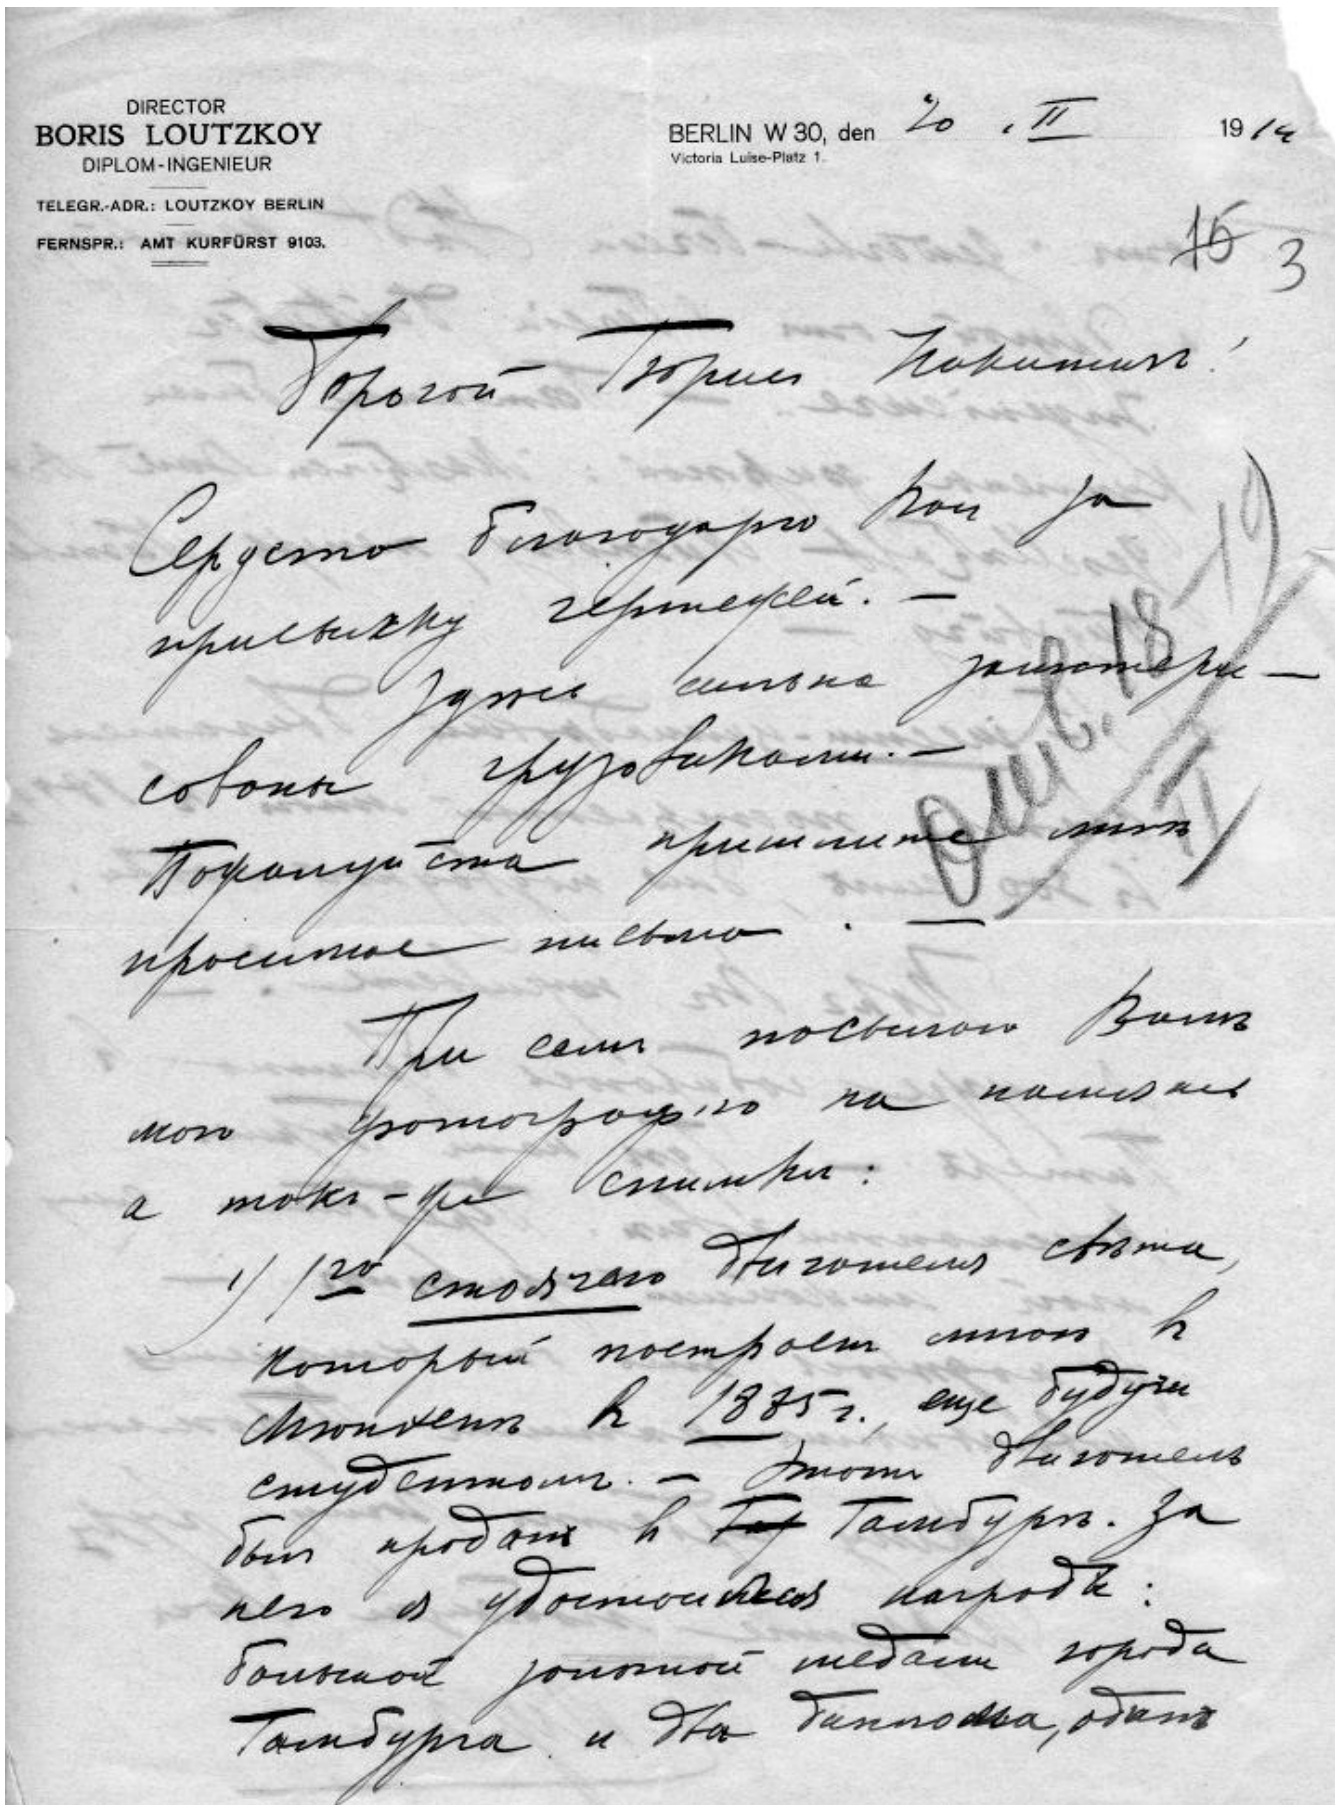 DIRECTOR
BORIS LOUTZKOY
DIPLOM-INGENIEUR
TELEGR.-ADR.: LOUTZKOY BERLIN
FERNSPR.: AMT KURFÜRST 9103.
BERLIN W 30, den 20 . II 1914
Victoria Luise-Platz 1.
16 3
Дорогой Борис
Сердечно благодарю Вас за
присылку чертежей. —
Здѣсь сильно заинтере-
сованы грузовиками. —
Пожалуйста пришлите мнѣ
просимое письмо . —
Отв. 18-19
II
При семъ посылаю Вамъ
мою фотографію на память
а такъ-же снимки:
1) 1го стоячаго двигателя свѣта,
который построенъ мною в
Мюнхенѣ в 1885 г., еще будучи
студентомъ. — Этотъ двигатель
былъ проданъ в Гамбургъ. За
него я удостоился наградъ:
большой золотой медали города
Гамбурга и два диплома, одинъ